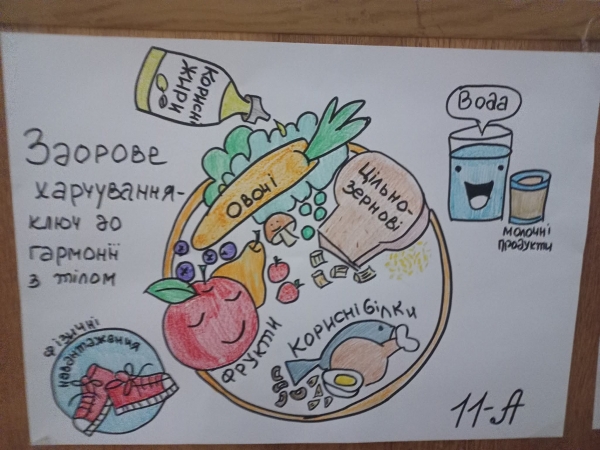 КОРИСНІ
ЖИРИ
Вода
Здорове
харчування-
ключ до
гармонії
з тілом
Овочі
Цільно-
зернові
молочні
продукти
Фізичні
навантаження
ФРУКТИ
Корисні білки
11-А